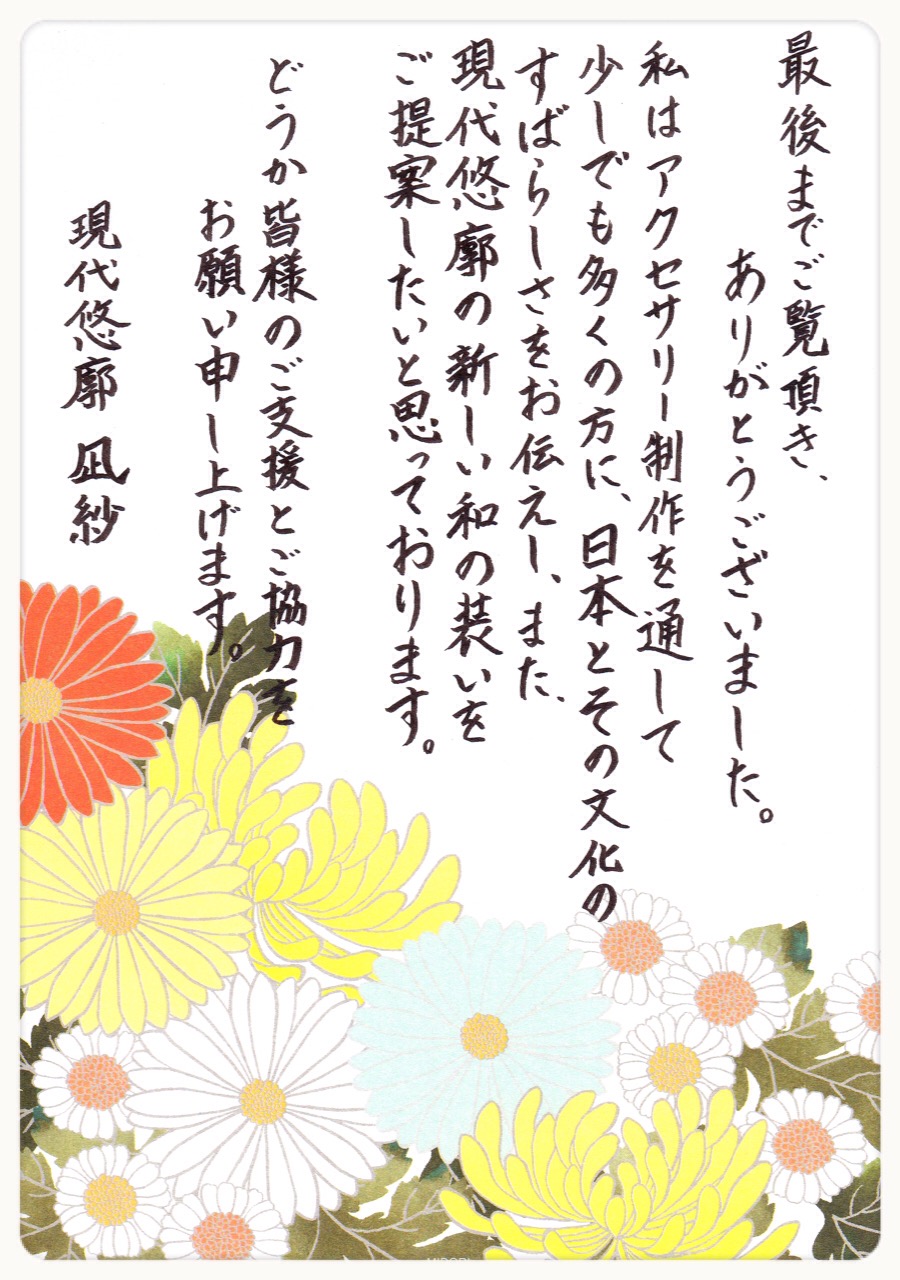 最後までご覧頂き、
ありがとうございました。
私はアクセサリー制作を通して
少しでも多くの方に、日本とその文化の
すばらしさをお伝えし、また、
現代悠廓の新しい和の装いを
ご提案したいと思っております。
どうか皆様のご支援とご協力を
お願い申し上げます。
現代悠廓 凪紗
MIDORI